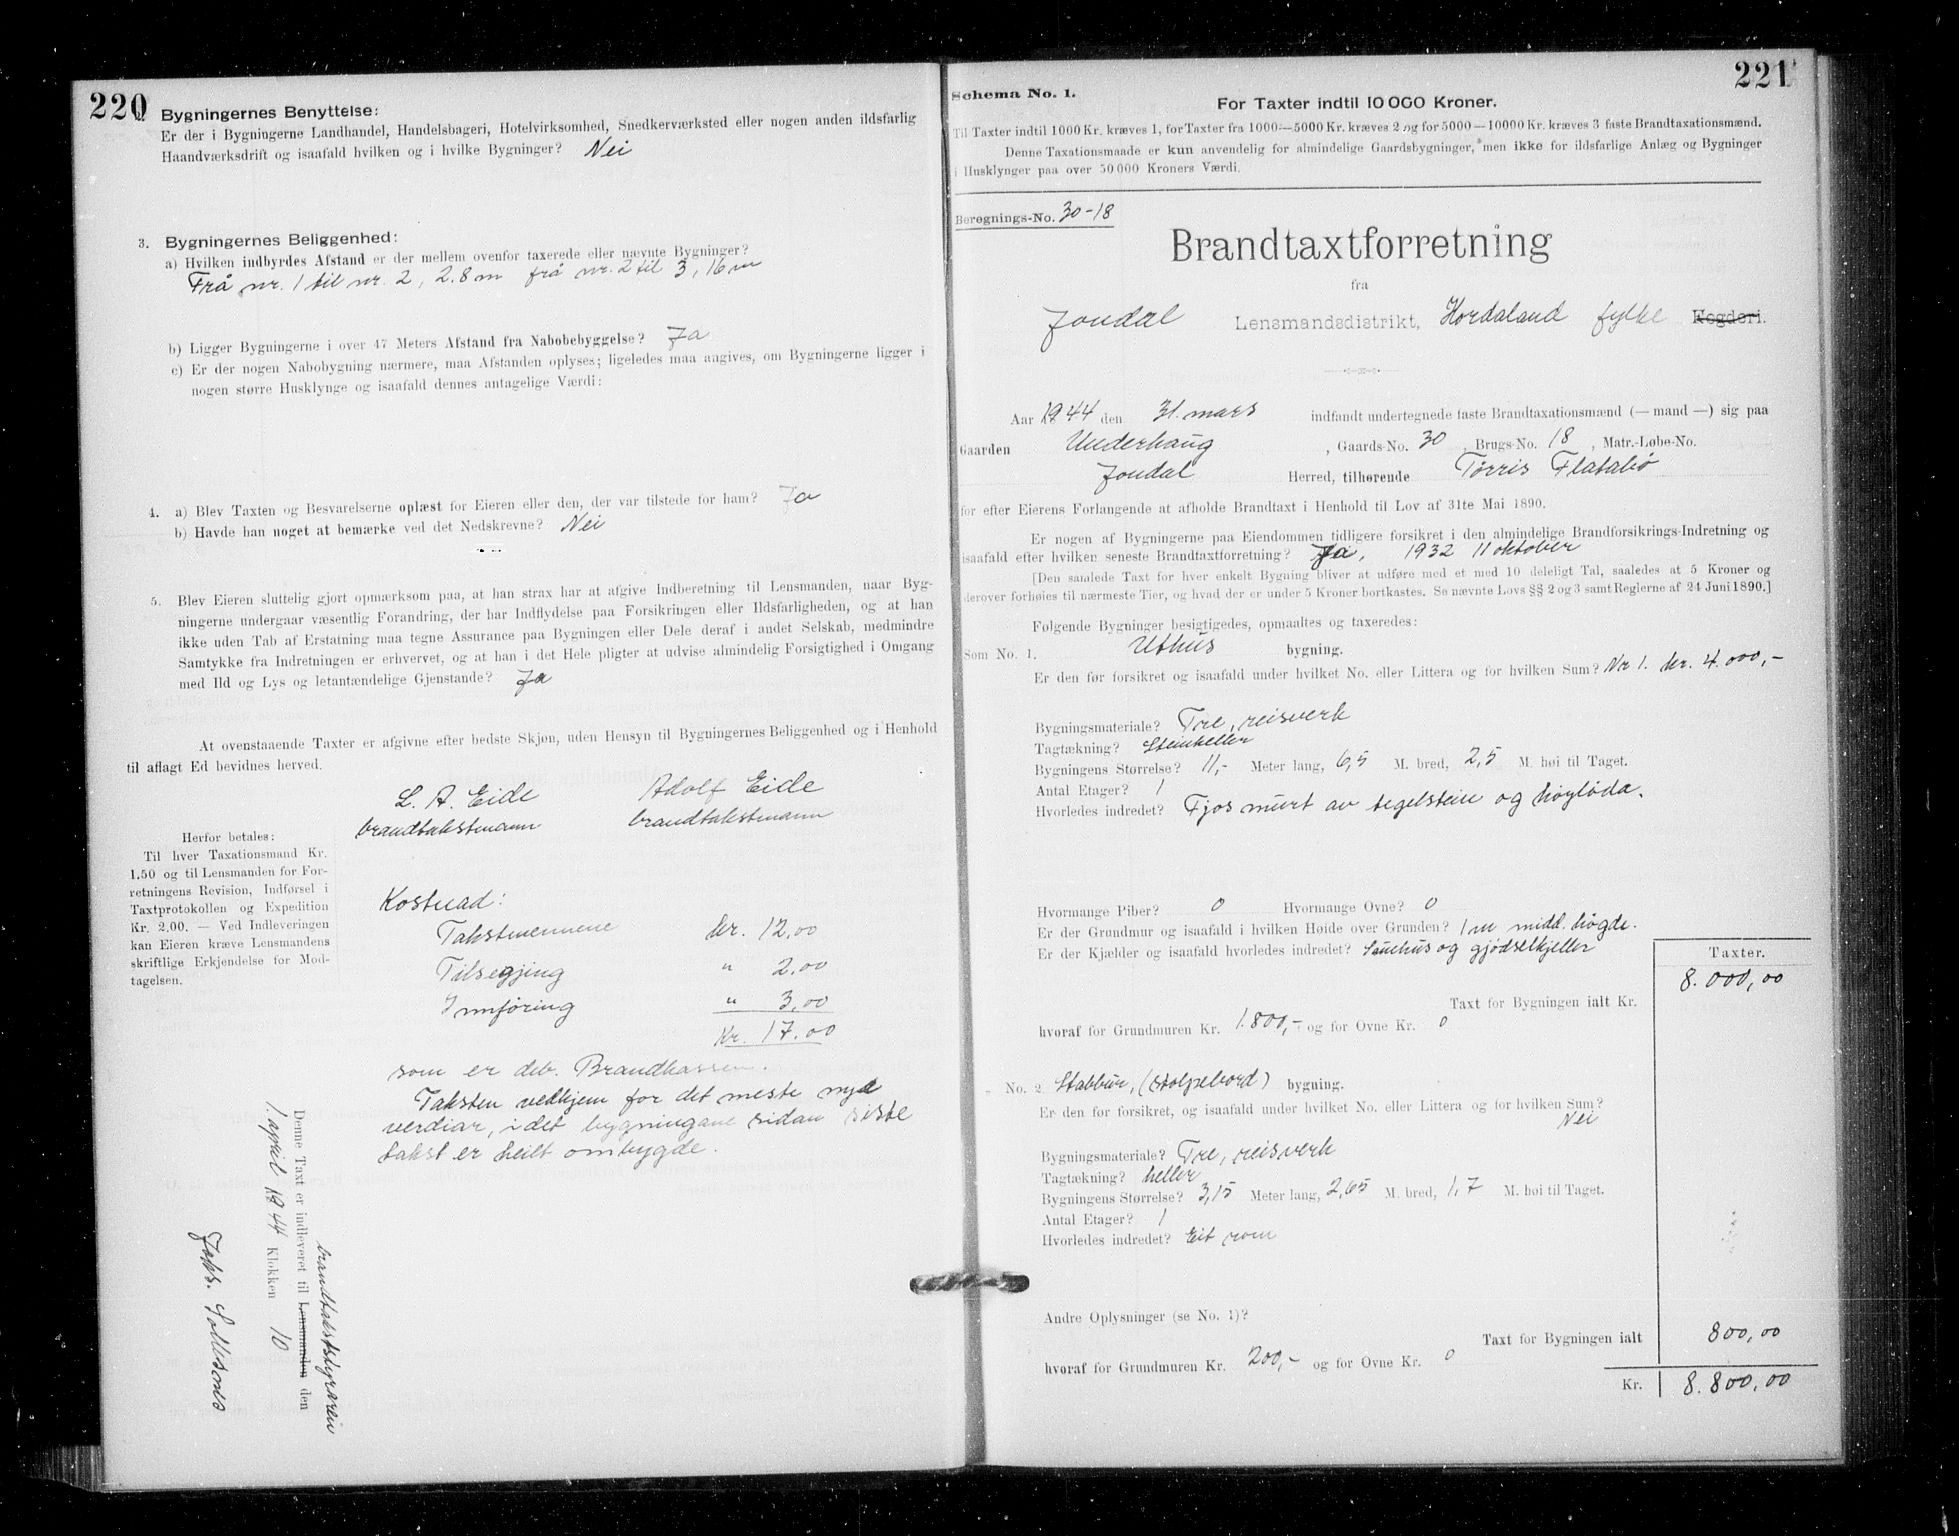 220
Bygningernes Benyttelse:
Er der i Bygningerne Landhandel, Handelsbageri, Hotelvirksomhed, Snedkerværksted eller nogen anden ildsfarlig
Haandværksdrift og isaafald hvilken og i hvilke Bygninger? Nei
3. Bygningernes Beliggenhed:
a) Hvilken indbyrdes Afstand er der mellem ovenfor taxerede eller nævnte Bygninger?
Frå nr. 1 til nr. 2, 2.8 m frå nr. 2 til 3, 16 m
b) Ligger Bygningerne i over 47 Meters Afstand fra Nabobebyggelse? Ja
c) Er der nogen Nabobygning nærmere, maa Afstanden oplyses; ligeledes maa angives, om Bygningerne ligger i
nogen større Husklynge og isaafald dennes antagelige Værdi:
4. a) Blev Taxten og Besvarelserne oplæst for Eieren eller den, der var tilstede for ham? Ja
b) Havde han noget at bemærke ved det Nedskrevne? Nei
5. Blev Eieren sluttelig gjort opmærksom paa, at han strax har at afgive Indberetning til Lensmanden, naar Byg-
ningerne undergaar væsentlig Forandring, der har Indflydelse paa Forsikringen eller Ildsfarligheden, og at han
ikke uden Tab af Erstatning maa tegne Assurance paa Bygningen eller Dele deraf i andet Selskab, medmindre
Samtykke fra Indretningen er erhvervet, og at han i det Hele pligter at udvise almindelig Forsigtighed i Omgang
med Ild og Lys og letantændelige Gjenstande? Ja
At ovenstaaende Taxter er afgivne efter bedste Skjøn, uden Hensyn til Bygningernes Beliggenhed og i Henhold
til aflagt Ed bevidnes herved.
L. A. Eide Adolf Eide
brandtakstmann brandtakstmann
Herfor betales:
Til hver Taxationsmand Kr.
1.50 og til Lensmanden for For-
retningens Revision, Indførsel i
Taxtprotokollen og Expedition
Kr. 2,00. — Ved Indleveringen
kan Eieren kræve Lensmandens
skriftlige Erkjendelse for Mod-
tagelsen.
Kostnad:
Takstmennene kr. 12,00
Tilsegjing " 2,00
Innføring " 3,00
Kr. 17.00
som er deb. Brandkassen.
Taksten vedkjem for det meste nye
verdiar, i det bygningane sidan siste
takst er heilt ombygde.
Denne Taxt er indleveret til Lensmanden den
brandtakstbyraren
1. april 1944 Klokken 10
Johs. Sollesnes
221
Schema No. 1.
For Taxter indtil 10 000 Kroner.
Til Taxter indtil 1000 Kr. kræves 1, for Taxter fra 1000—5000 Kr. kræves 2 og for 5000—10000 Kr. kræves 3 faste Brandtaxationsmænd.
Denne Taxationsmaade er kun anvendelig for almindelige Gaardsbygninger, men ikke for ildsfarlige Anlæg og Bygninger
i Husklynger paa over 50 000 Kroners Værdi.
Beregnings-No. 30-18
Brandtaxtforretning
fra
Jondal Lensmandsdistrikt, Hordaland fylke Fogderi.
Aar 1944 den 31. mars indfandt undertegnede faste Brandtaxationsmænd (— mand —) sig paa
Gaarden Underhaug, Gaards-No. 30, Brugs-No. 18, Matr.-Løbe-No.
Jondal Herred, tilhørende Tørris Flatabø
for efter Eierens Forlangende at afholde Brandtaxt i Henhold til Lov af 31te Mai 1890.
Er nogen af Bygningerne paa Eiendommen tidligere forsikret i den almindelige Brandforsikrings-Indretning og
isaafald efter hvilken seneste Brandtaxtforretning? Ja, 1932 11 oktober
[Den samlede Taxt for hver enkelt Bygning bliver at udføre med et med 10 deleligt Tal, saaledes at 5 Kroner og
derover forhøies til nærmeste Tier, og hvad der er under 5 Kroner bortkastes. Se nævnte Lovs §§ 2 og 3 samt Reglerne af 24 Juni 1890.]
Følgende Bygninger besigtigedes, opmaaltes og taxeredes:
Som No. 1. Uthus bygning.
Er den før forsikret og isaafald under hvilket No. eller Littera og for hvilken Sum? Nr 1. kr. 4.000,-
Bygningsmateriale? Tre, reisverk
Tagtækning? Steinheller
Bygningens Størrelse? 11,- Meter lang, 6,5 M. bred, 2,5 M. høi til Taget.
Antal Etager? 1
Hvorledes indredet? Fjos murt av tegelstein og høyløda.
Hvormange Piber? 0 Hvormange Ovne? 0
Er der Grundmur og isaafald i hvilken Høide over Grunden? 1 m midd. høgde.
Er der Kjælder og isaafald hvorledes indredet? Sauhus og gjødselkjeller
Taxter.
8.000,00
Taxt for Bygningen ialt Kr.
hvoraf for Grundmuren Kr. 1.800,- og for Ovne Kr. 0
No. 2 Stabbur, (stolpebord) bygning.
Er den før forsikret, og isaafald under hvilket No. eller Littera og for hvilken Sum?
Nei
Bygningsmateriale? Tre, reisverk
Tagtækning? heller
Bygningens Størrelse? 3,15 Meter lang, 2,65 M. bred, 1,7 M. høi til Taget.
Antal Etager? 1
Hvorledes indredet? Eit rom
Andre Oplysninger (se No. 1)?
Taxt for Bygningen ialt 800,00
hvoraf for Grundmuren Kr. 200,- og for Ovne Kr. 0
Kr. 8.800,00